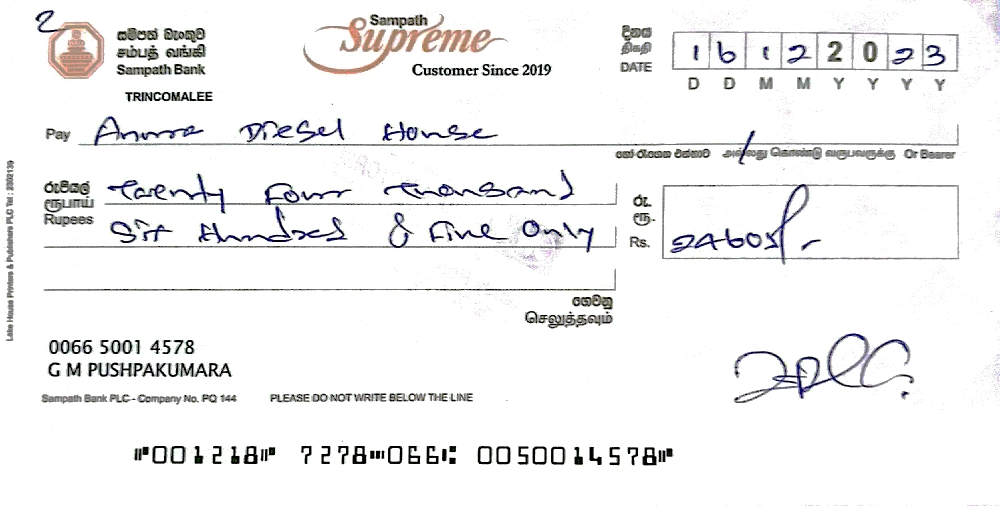 2
සම්පත් බැංකුව
சம்பத் வங்கி
Sampath Bank
TRINCOMALEE
Sampath
Supreme
Customer Since 2019
දිනය
திகதி
DATE
1 6 1 2 2 0 2 3
D D M M Y Y Y Y
Pay Diesel House
හෝ රැගෙන එන්නාට அல்லது கொண்டு வருபவருக்கு Or Bearer
රුපියල්
ரூபாய்
Rupees
Twenty Four Thousand
Six Hundred & Five Only
රු.
ரூ.
Rs. 24605/-
ගෙවනු
செலுத்தவும்
0066 5001 4578
G M PUSHPAKUMARA
Sampath Bank PLC - Company No. PQ 144 PLEASE DO NOT WRITE BELOW THE LINE
⑈001218⑈ 7278⑉066⑆ 0050014578⑈
Lake House Printers & Publishers PLC Tel : 2302139